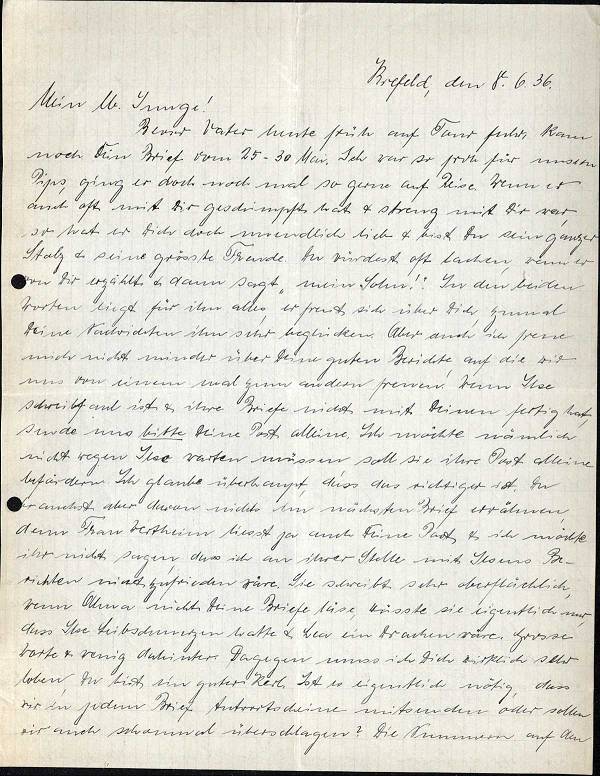 Krefeld, den 8. 6. 36.
Mein lb. Junge!
Bevor Vater heute früh auf Tour fuhr, kam
noch Dein Brief vom 25-30 Mai. Ich war so froh für unseren
Pips, ging er doch noch mal so gerne auf Reise. Wenn er
auch oft mit Dir geschimpft hat & streng mit Dir war,
so hat er Dich doch unendlich lieb & bist Du sein ganzer
Stolz & seine grösste Freude. Du würdest oft lachen, wenn er
von Dir erzählt & dann sagt „mein Sohn!". In den beiden
Worten liegt für ihn alles, er freut sich über Dich, zumal
Deine Nachrichten ihn sehr beglücken. Aber auch ich freue
mich nicht minder über Deine guten Berichte auf die wir
uns von einem mal zum andern freuen. Wenn Ilse
schreibfaul ist & ihre Briefe nicht mit Deinen fertig hat,
sende uns bitte Deine Post alleine. Ich möchte nämlich
nicht wegen Ilse warten müssen soll sie ihre Post alleine
befördern. Ich glaube überhaupt, dass das richtiger ist. Du
brauchst aber davon nichts im nächsten Brief erwähnen,
denn Frau Wertheim liesst ja auch Deine Post & ich möchte
ihr nicht sagen, dass ich an ihrer Stelle mit Ilsens Be-
richten nicht zufrieden wäre. Sie schreibt sehr oberflächlich,
wenn Oma nicht Deine Briefe läse, wüsste sie eigentlich nur,
dass Ilse Leibschmerzen hatte & ein Drachen wäre. Grosse
Worte & wenig dahinter. Dagegen muss ich Dich wirklich sehr
loben, Du bist ein guter Kerl. Ist es eigentlich nötig, dass
wir in jedem Brief Antwortscheine mitsenden oder sollen
wir auch schonmal überschlagen? Die Nummern auf den